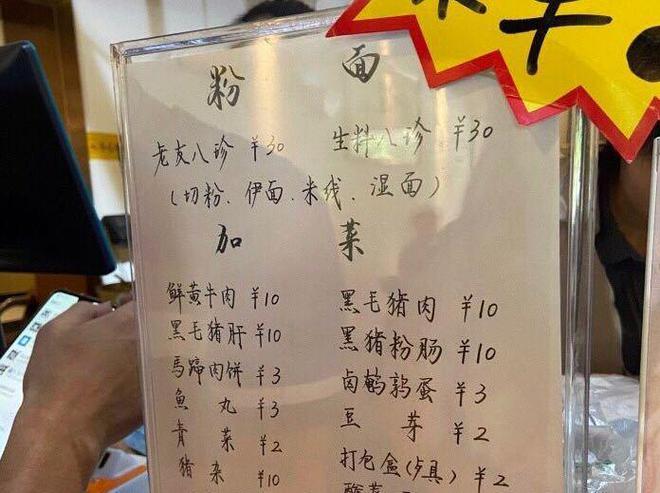 粉 面
老友八珍 ¥30 生料八珍 ¥30
(切粉、伊面、米线、湿面)
加 菜
鲜黄牛肉 ¥10 黑毛猪肉 ¥10
黑毛猪肝 ¥10 黑猪粉肠 ¥10
馬蹄肉饼 ¥3 卤鹌鹑蛋 ¥3
魚丸 ¥3 豆芽 ¥2
青菜 ¥2 打包盒(歺具) ¥2
猪杂 ¥10